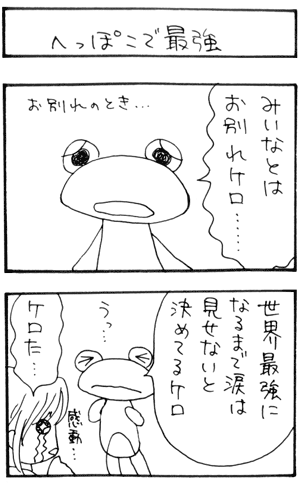 へっぽこで最強
みいなとは
お別れケロ……
お別れのとき…
世界最強に
なるまで涙は
見せないと
決めてるケロ
うっ…
ケロた…
感動…